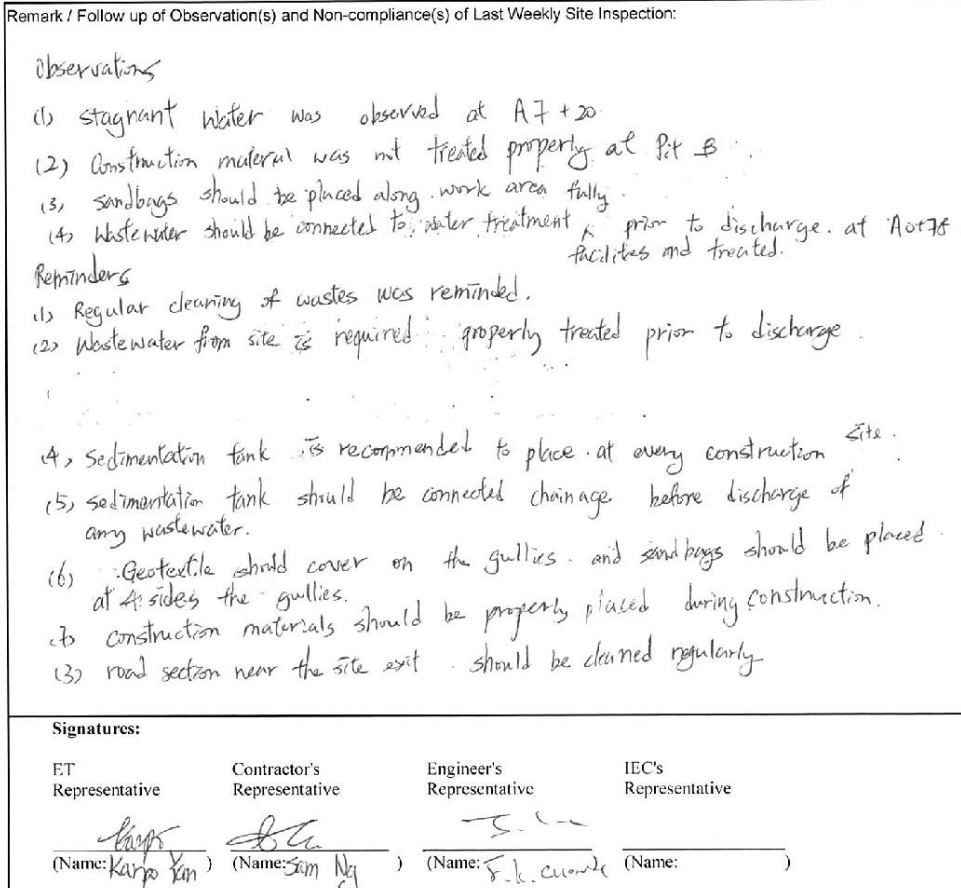 Remark / Follow up of Observation(s) and Non-compliance(s) of Last Weekly Site Inspection:
Observations
(1) stagnant water was observed at A7+20
(2) Construction material was not treated properly at Pit B.
(3) sandbags should be placed along work area fully.
(4) Wastewater should be connected to water treatment ^ prior to discharge. at
facilities and treated.
Reminders
(1) Regular cleaning of wastes was reminded.
(2) Wastewater from site is required properly treated prior to discharge.
(4) Sedimentation tank is recommended to place at every construction site.
(5) sedimentation tank should be connected chainage before discharge of
any wastewater.
(6) Geotextile should cover on the gullies. and sandbags should be placed.
at 4 sides the gullies.
(7) construction materials should be properly placed during construction.
(3) road section near the site exit should be cleaned regularly
Signatures:
ET Contractor's Engineer's IEC's
Representative Representative Representative Representative
(Name: Karpo Yan ) (Name: Sam Ng ) (Name: (Name: )